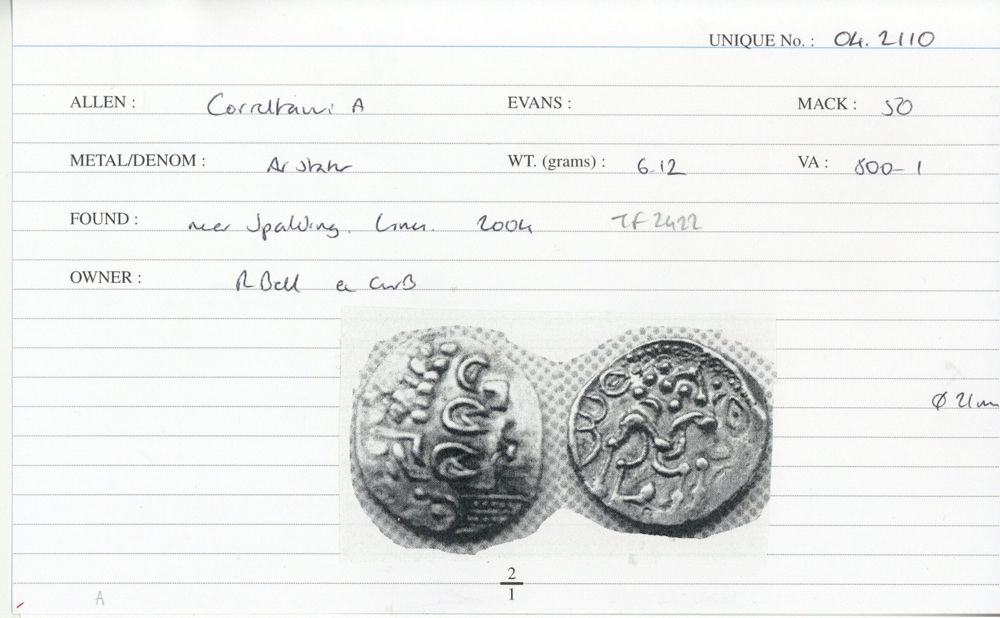 UNIQUE No. : 04. 2110
ALLEN : Corieltauvi A EVANS : MACK : 50
METAL/DENOM : Av stater WT. (grams) : 6.12 VA : 800-1
FOUND : near Spalding. Lincs. 2004 TF 2422
OWNER : R Bell
Ø 21m
2
1
A